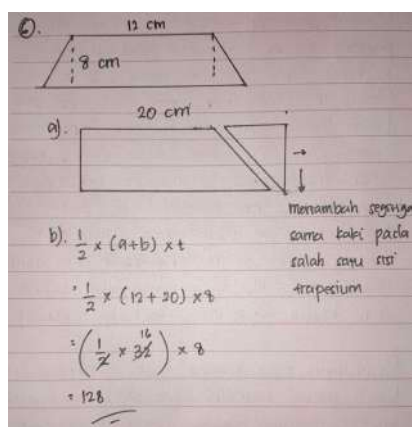 6.
12 cm
8 cm
a).
20 cm
menambah segitiga
sama kaki pada
salah satu sisi
trapesium
b). 1/2 x (a+b) x t
= 1/2 x (12 + 20) x 8
= (1/2 x 32 16) x 8
= 128